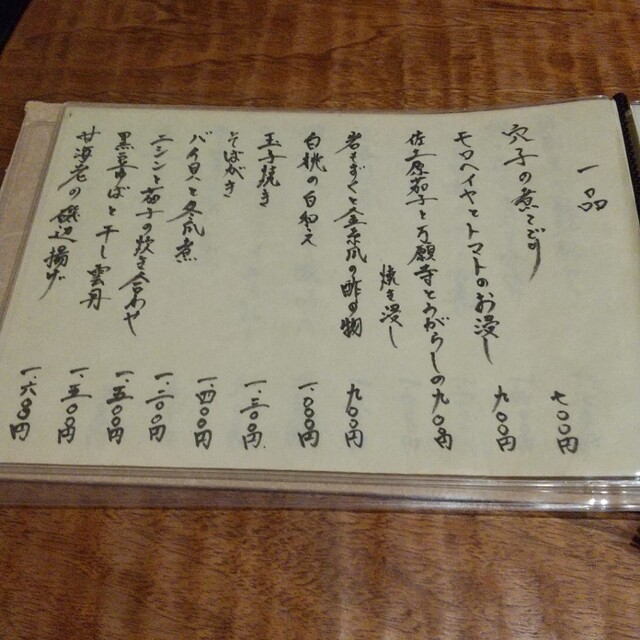 一品
穴子の煮こごり 七〇〇円
モロヘイヤとトマトのお浸し 九〇〇円
佐土原茄子と万願寺とうがらしの 九〇〇円
焼き浸し
岩もずくと金糸瓜の酢の物 九〇〇円
白桃の白和え 一、〇〇〇円
玉子焼き 一、三〇〇円
そばがき 一、四〇〇円
バイ貝と冬瓜煮 一、二〇〇円
ニシンと茄子の炊き合わせ 一、五〇〇円
黒豆ゆばと干し雲丹 一、五〇〇円
甘海老の磯辺揚げ 一、六〇〇円